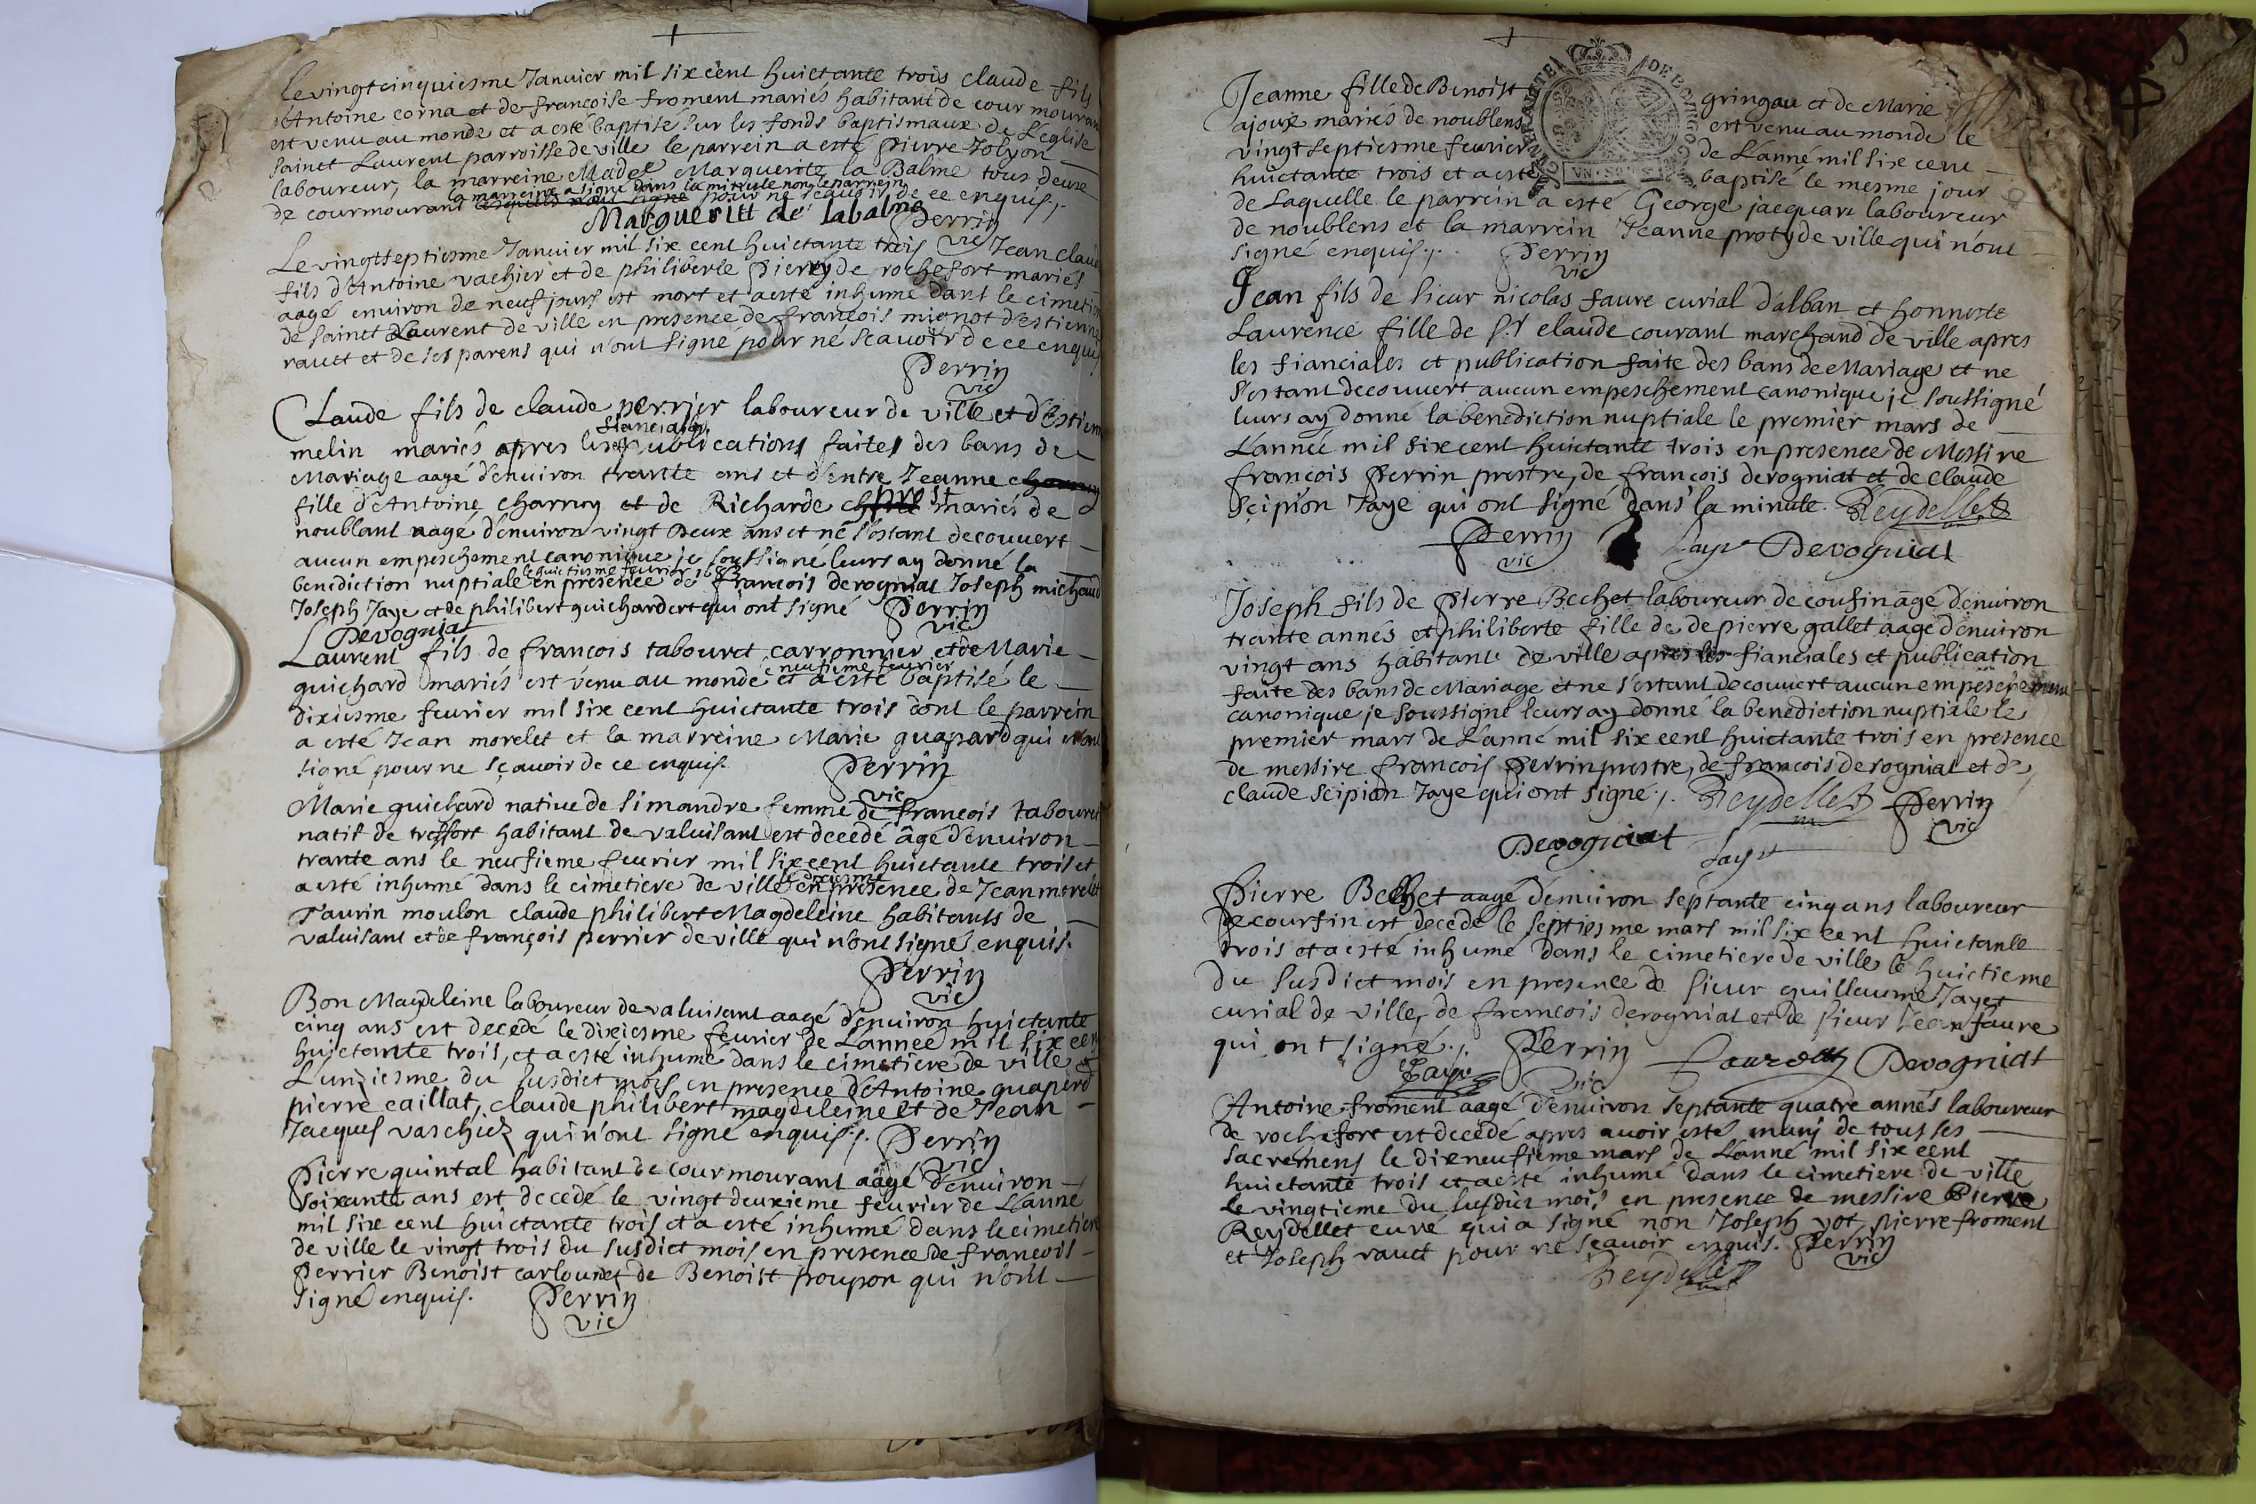 Le vingtcinquiesme Januier mil six cent huictante trois claude fils
d'Antoine corna et de francoise froment mariés habitant de cour mouran
est venu au monde et a esté baptisé sur les fonds baptismaux de L'eglise
sainct Laurent parroisse de ville le parrein a esté pierre Jolyon
laboureur, la marreine Madel Marguerite la Balme tous deux
la marreine a signé dans la minute non le parrein
de courmourant pour ne scauoir de ce enquis./.
Margueritt de labalme Perrin
vic
Le vingtseptiesme Januier mil six cent huictante trois Jean claude
fils d'Antoine vachier et de philiberte Pierry de rochefort mariés
aagé enuiron de neuf jours est mort et a esté inhumé dans le cimetie
de sainct Laurent de ville en presence de francois mignot d'estienne
rautt et de ses parens qui n'ont signé pour né scauoir de ce enquis
Perrin
vic
Claude fils de claude perrier laboureur de ville et d'Estienn
fiancialles
melin mariés apres les publications faites des bans de
Mariage aagé d'enuiron trantte ans et d'entre Jeanne
fille d'Antoine charny et de Richarde prost mariés de
noublant aagé d'enuiron vingt deux ans et né s'estant decouuert
aucun empeschement canonique je soussigné leurs ay donné la
le huictiesme feurier 1683
benediction nuptiale en presence de francois derogniat Joseph michaud
Joseph Jaye et de philibert guichard et qui ont signé Perrin
Derogniat vic
Laurent fils de francois tabouret carronnier et de Marie
le neufieme feurier
guichard mariés est venu au monde et a esté baptisé le
dixiesme feurier mil six cent huictante trois dont le parrein
a esté Jean morelet et la marreine Marie guapard qui n'ont
signé pour ne sçauoir de ce enquis. Perrin
vic
Marie guichard natiue de simandre femme de francois tabouret
natif de treffort habitant de valuisant est decedé âgé d'enuiron
trante ans le neufieme feurier mil six cent huictante trois et
le dixiesme
a esté inhumé dans le cimetiere de ville en presence de Jean morelet
Taurin moulon claude philibert Magdeleine habitants de
valuisant et de françois perrier de ville qui n'ont signés enquis.
Perrin
vic
Bon Magdeleine laboureur de valuisant aagé d'enuiron huictante
cinq ans est decedé le dixiesme feurier de L'année mil six cen
huictante trois, et a esté inhumé dans le cimetiere de ville
L'unziesme du susdict mois en presence d'Antoine guaperd
pierre caillat, claude philibert magdeleine et de Jean
Jacques varschiez qui n'ont signé enquis./. Perrin
vic
Pierre quintal habitant de courmourant aagé d'enuiron
soixante ans est decedé le vingt deuxieme feurier de L'anné
mil six cent huictante trois et a esté inhumé dans le cimetiere
de ville le vingt trois du susdict mois en presence de francois
Perrier Benoist carlounet de Benoist poupon qui n'ont
signé enquis. Perrin
vic
Jeanne fille de Benoist gringau et de Marie
ajoux mariés de noublens est venu au monde le
vingtseptiesme feurier de L'anné mil six cent
huictante trois et a esté baptisé le mesme jour
de Laquelle le parrein a esté George jacquan laboureur
de noublens et la marrein Jeanne proty de ville qui n'ont
signé enquis./. Perrin
vic
Jean fils de sieur nicolas faure curial d'alban et honneste
Laurence fille de Sr claude courant marchand de ville apres
les fianciales et publication faite des bans de Mariage et ne
s'estant decouuert aucun empeschement canonique je soussigné
leurs ay donné la benediction nuptiale le premier mars de
L'année mil six cent huictante trois en presence de Messire
francois Perrin prestre, de francois derogniat et de claude
Scipion Jaye qui ont signé dans la minute. Reydellet
Perrin Jaye Derogniat
vic
Joseph fils de Pierre Bechet laboureur de coufin âgé d'enuiron
trante annés et philiberte fille de de pierre gallet aagé d'enuiron
vingt ans habitant de ville apres les fianciales et publication
faite des bans de Mariage et ne s'estant decouuert aucun empeschement
canonique je soussigné leurs ay donné la benediction nuptiale le
premier mars de L'anné mil six cent huictante trois en presence
de messire francois Perrin prestre, de francois derogniat et de
claude scipion Jaye qui ont signé./. Reydellet Perrin
vic
Derogniat Jaye
Pierre Bechet aagé d'enuiron septante cinq ans laboureur
de coursin est decedé le septiesme mars mil six cent huictante
trois et a esté inhumé dans le cimetiere de ville le huictieme
du susdict mois en presence de sieur guillaume Jayet
curial de ville, de francois derogniat et de sieur Jean faure
qui ont signé./. Perrin Derogniat
Jaye vic
Antoine froment aagé d'enuiron septante quatre annés laboureur
de rochefort est decedé apres auoir esté muny de tous ses
sacremens le dixneufieme mars de L'anné mil six cent
huictante trois et a esté inhumé dans le cimetiere de ville
le vingtieme du susdict mois en presence de messire Pierre
Reydellet curé qui a signé non Joseph vot pierre froment
et Joseph rauet pour ne sçauoir enquis. Perrin
Reydellet vic